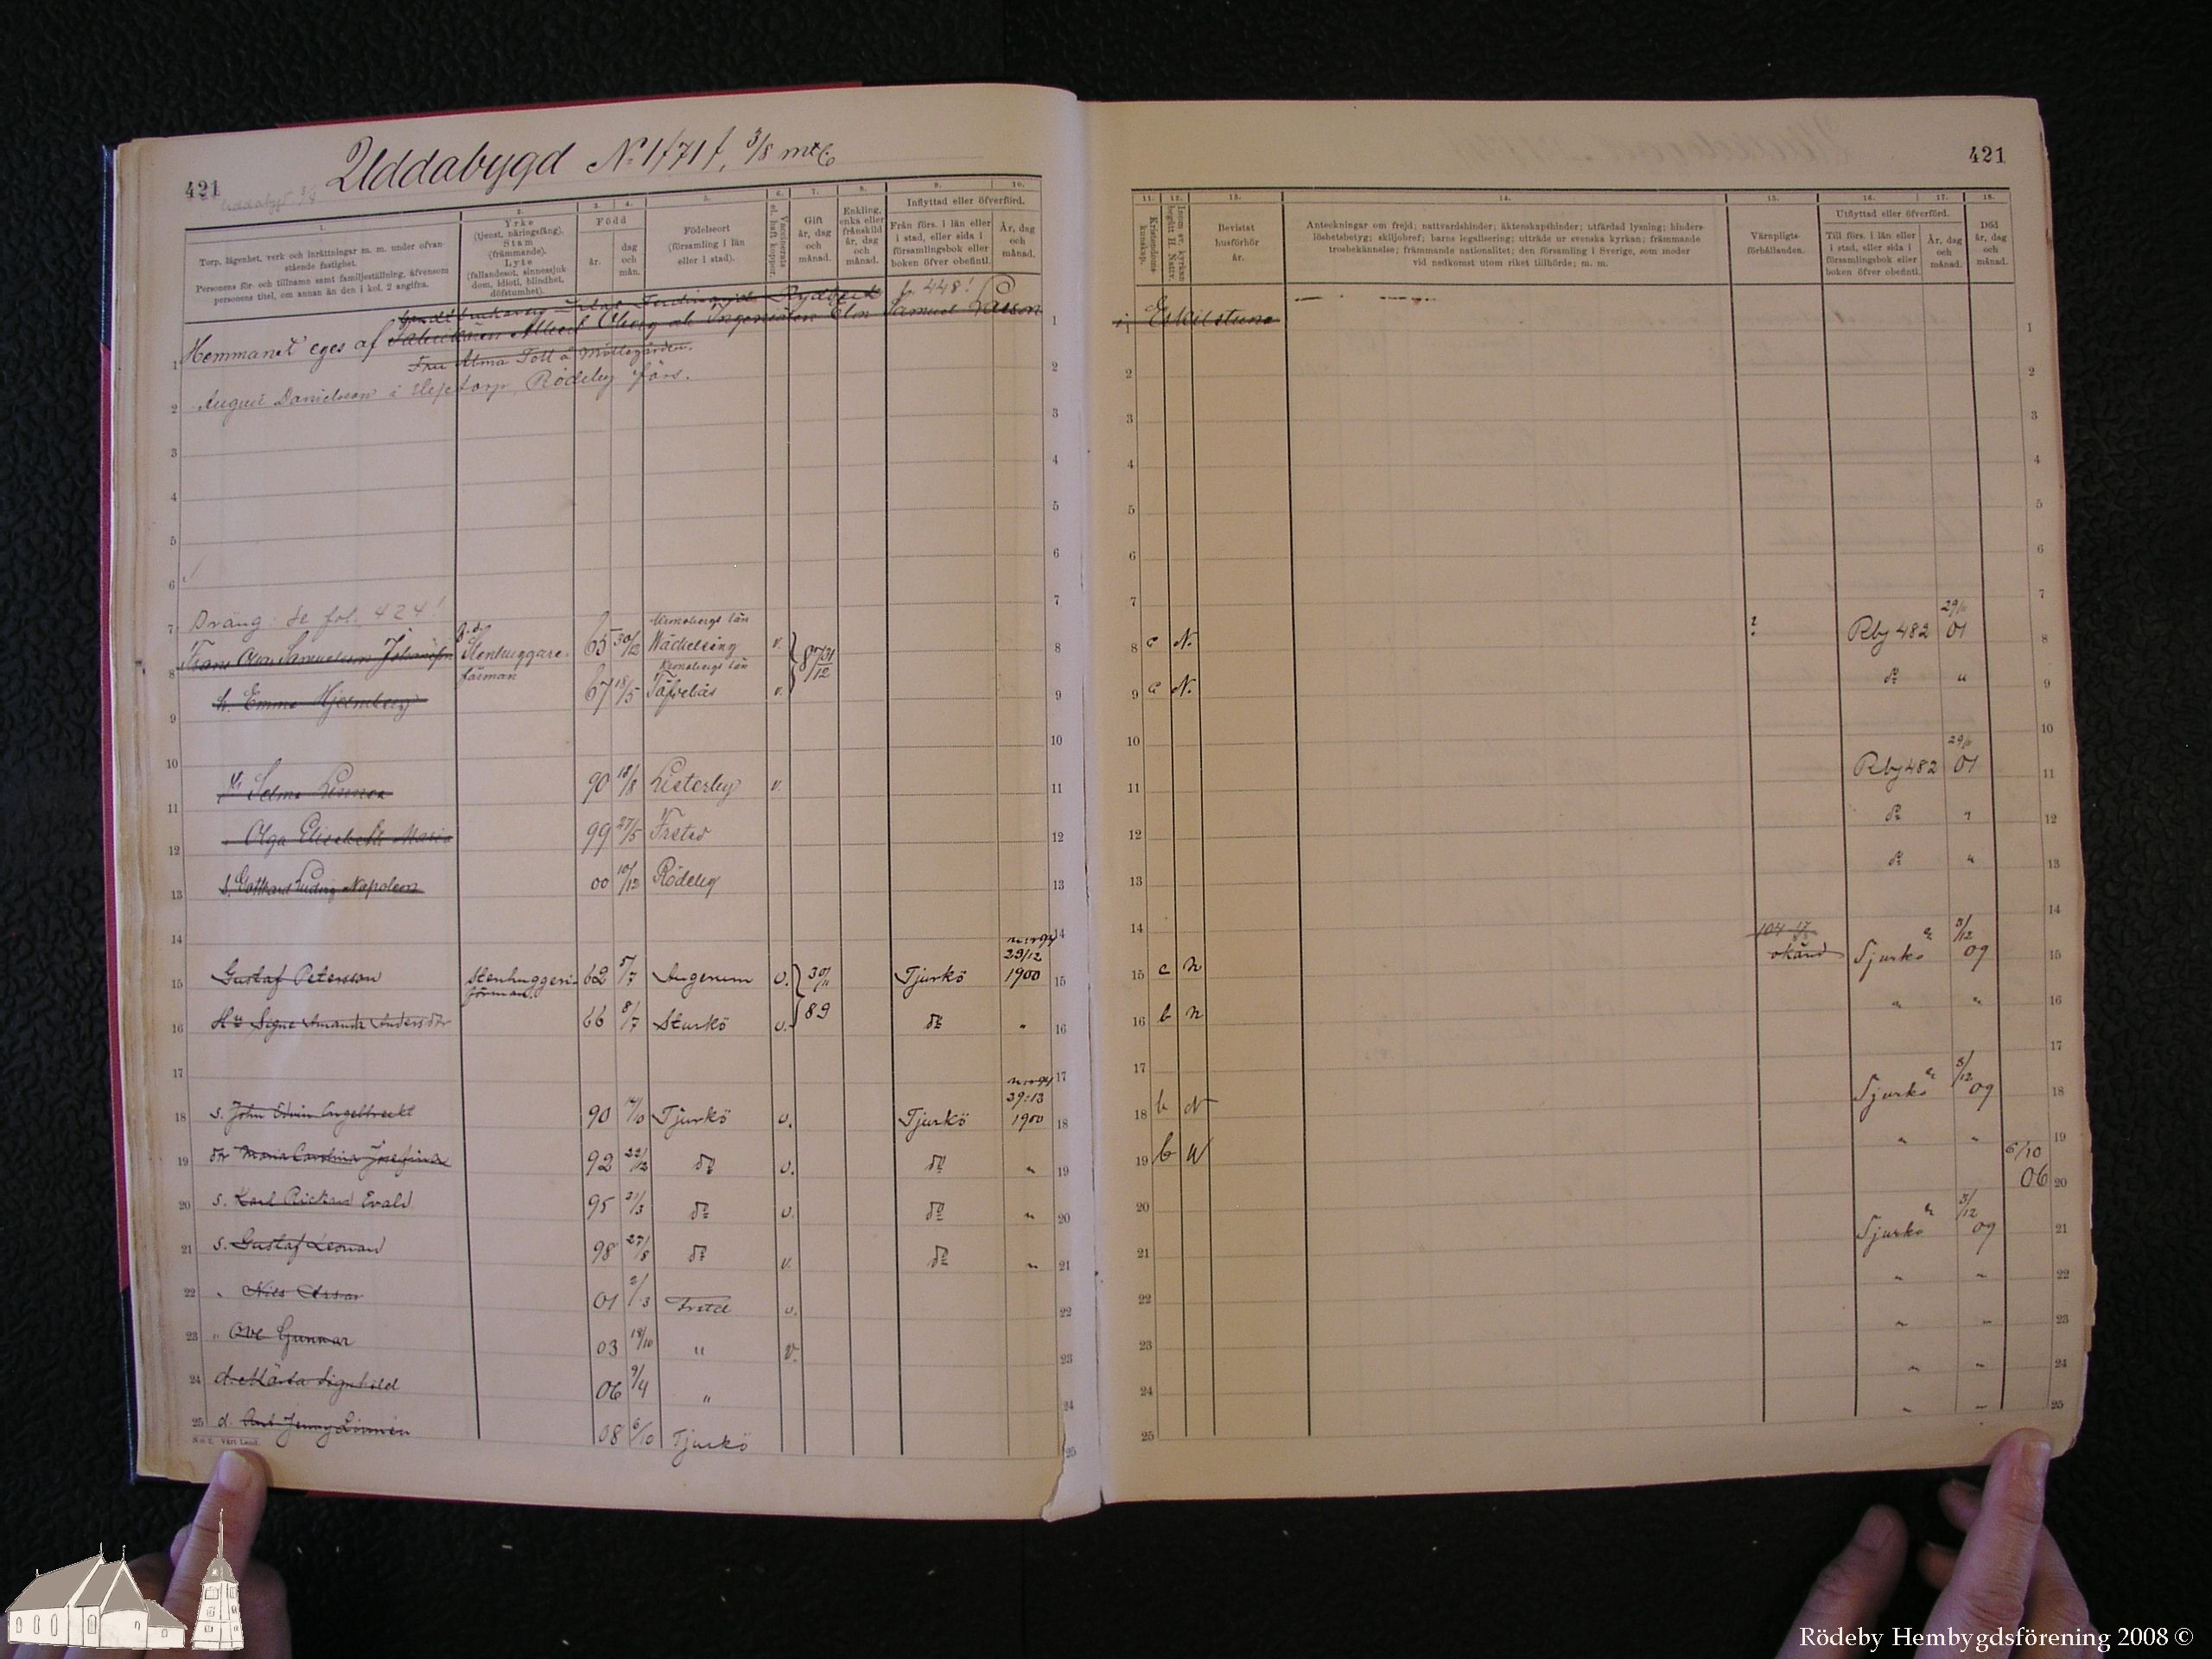 421
Uddabygd 3/8
Uddabygd No 1/71/, 3/8 mtl
1.
Torp, lägenhet, verk och inrättningar m. m. under ofvan-
stående fastighet.
Personens för- och tillnamn samt familjeställning, äfvensom
personens titel, om annan än den i kol. 2 angifna.
2.
Yrke
(tjenst, näringsfång).
Stam
(främmande).
Lyte
(fallandesot, sinnessjuk-
dom, idioti, blindhet,
döfstumhet).
3. 4.
Född
år.
dag
och
mån.
5.
Födelseort
(församling i län
eller i stad).
6.
Vaccinerats
el. haft koppor.
7.
Gift
år, dag
och
månad.
8.
Enkling,
enka eller
frånskild
år, dag
och
månad.
9. 10.
Inflyttad eller öfverförd.
Från förs. i län eller
i stad, eller sida i
församlingsbok eller
boken öfver obefintl.
År, dag
och
månad.
fr. 448!
Hemmanet eges af
Samuel Larson
Fru Alma Tott å Möllegården.
August Danielsson i Rödeby förs.
Dräng: se fol. 424!
8 Frans Otto Samuelsson Stenhuggare- förman 65 30/12 Kronobergs län Wäckelsång v. 87 31/12
9 h. Emma 67 18/5 Kronobergs län Täfvelås v.
11 Selma 90 18/8 Listerby v.
12 Olga Elisabeth Maria 99 27/5 Fristad
13 s. Gotthard Ludvig Napoleon 00 10/12 Rödeby
15 Gustaf Petersson Stenhuggeri- förman. 62 5/7 Augerum v. 30/11 Tjurkö 29/12 1900
16 Hu Signe Amanda Andersdtr 66 8/7 Sturkö v. 89 do "
18 s. John Edvin Engelbrekt 90 Tjurkö v. Tjurkö 1900
19 dtr Maria Carolina Josefina 92 22/12 do v. do "
20 s. Karl Rickard Evald 95 21/3 do v. do "
21 s. Gustaf Leonard 98 27/8 do v. do "
22 " Nils Assar 01 2/3 v.
23 " Ove Gunnar 03 18/10 " v.
24 d. Märta Signhild 06 9/4 "
25 d. Jenny Linnéa 08 6/10 Tjurkö
421
11.
Kristendoms-
kunskap.
12.
Inom sv. kyrkan
begått H. Nattv.
13.
Bevistat
husförhör
år.
14.
Anteckningar om frejd; nattvardshinder; äktenskapshinder; utfärdad lysning; hinders-
löshetsbetyg; skiljobref; barns legalisering; utträde ur svenska kyrkan; främmande
trosbekännelse; främmande nationalitet; den församling i Sverige, som moder
vid nedkomst utom riket tillhörde; m. m.
15.
Värnpligts-
förhållanden.
16. 17.
Utflyttad eller öfverförd.
Till förs. i län eller
i stad, eller sida i
församlingsbok eller
boken öfver obefintl.
År, dag
och
månad.
18.
Död
år, dag
och
månad.
1 i Eskilstuna
8 c N. ? Rby 482 29/11 01
9 c N. do "
11 Rby 482 29/11 01
12 do "
13 do "
15 c n okänd Tjurkö 3/12 09
16 b n " "
18 b N Tjurkö 3/12 09
19 b N " "
20 6/10 06
21 Tjurkö 3/12 09
22 " "
23 " "
24 " "
25 " "
Rödeby Hembygdsförening 2008 ©